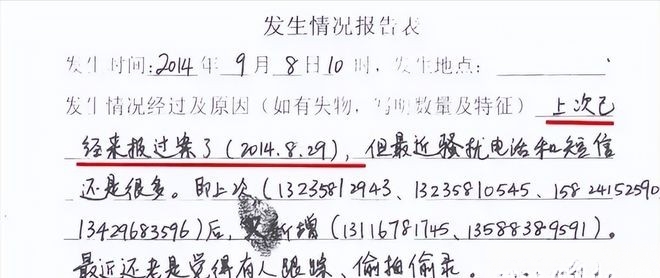 发生情况报告表
发生时间:2014年9月8日10时,发生地点:
发生情况经过及原因(如有失物,写明数量及特征) 上次已
经来报过案了(2014.8.29),但最近骚扰电话和短信
还是很多。即上次(13235812943、13235810545、15824152590、
13429683596)后,又新增(13116781745、13588389591)。
最近还老是觉得有人跟踪、偷拍偷录。